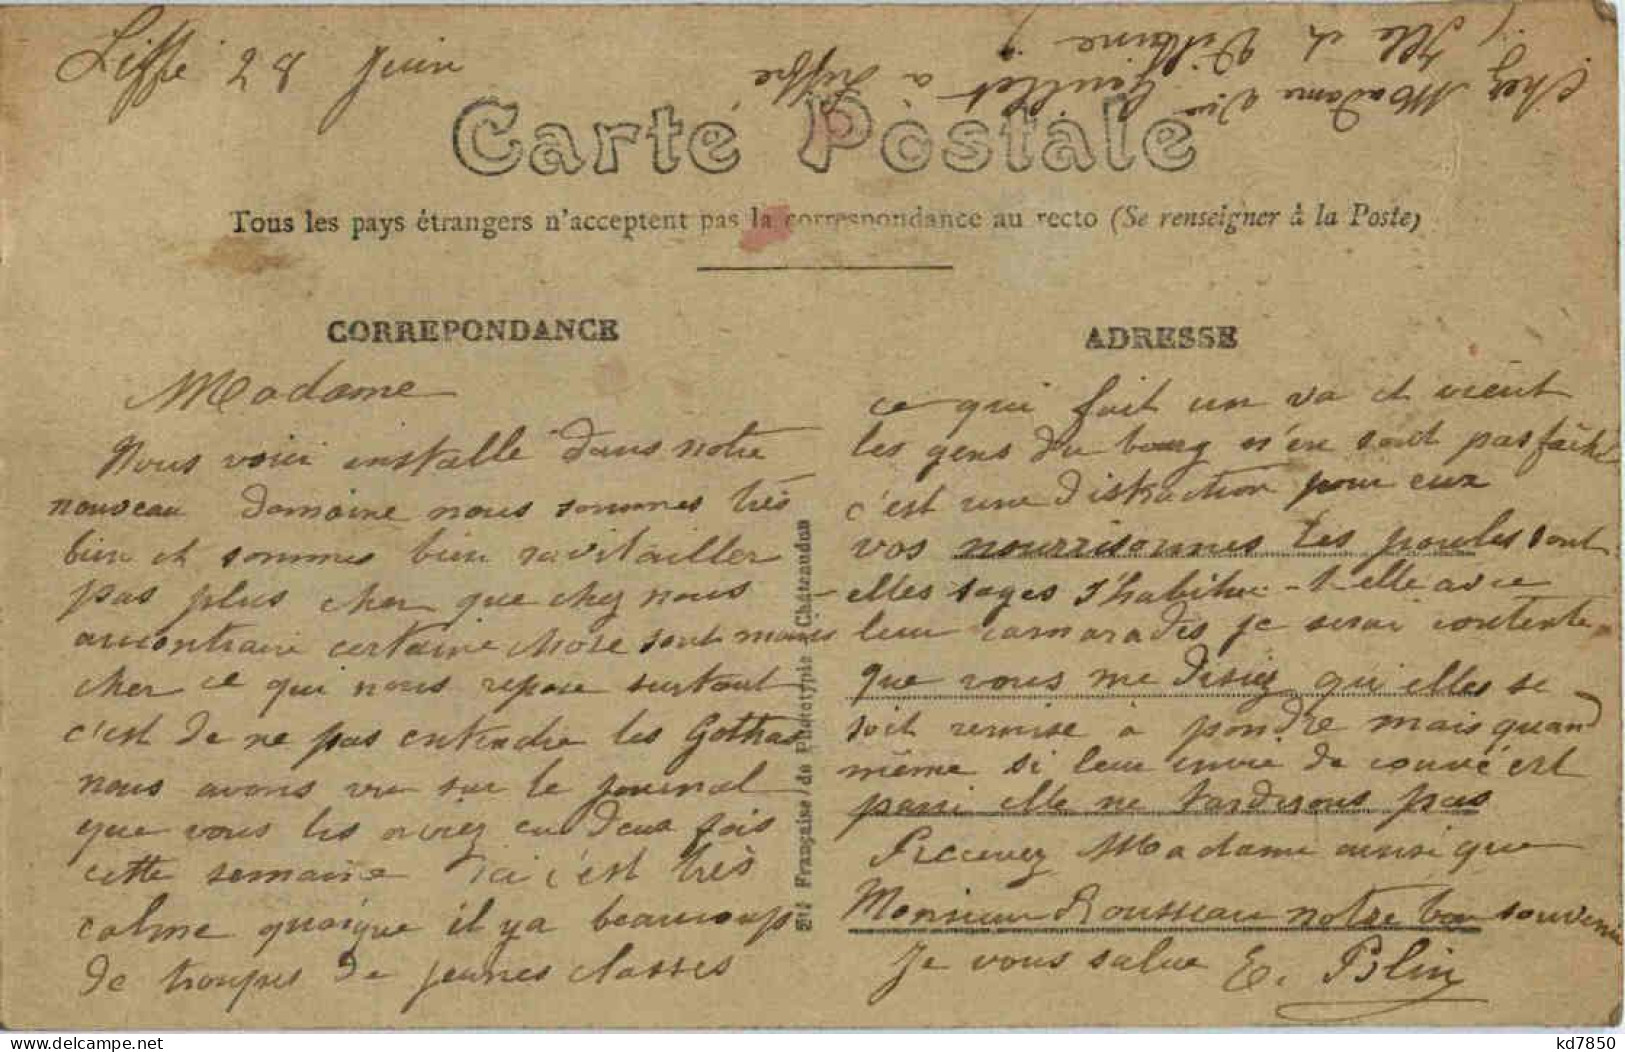 Liffré 28 Juin
Chez Madame Vve Genillet a Liffre
(Ille et Vilaine)
Carte Postale
Tous les pays étrangers n'acceptent pas la correspondance au recto (Se renseigner à la Poste)
CORREPONDANCE
Madame
Nous voici installe dans notre
nouveau domaine nous sommes très
bien et sommes bien ravitailler
pas plus cher que chez nous
aucontraire certaine chose sont moins
cher ce qui nous repose surtout
c'est de ne pas entendre les Gothas
nous avons vu sur le journal
que vous les aviez eu deux fois
cette semaine Ici c'est très
calme quoique il ya beaucoup
de troupes de jeunes classes
Sté Française de Phototypie - Châteaudun
ADRESSE
ce qui fait un va et vient
les gens du bourg n'en sont pas fâché
c'est une distraction pour eux
vos nourrisonnes les poules sont
elles sages s'habitue-t-elle avec
leur camarades je serai contente
que vous me disiez qui elles se
soit remise à pondre mais quand
même si leur envie de couvé est
passi elle ne tarderons pas
Recevez Madame ainsi que
Monsieur Rousseau notre bon souvenir
Je vous salue E. Blin
kd7850